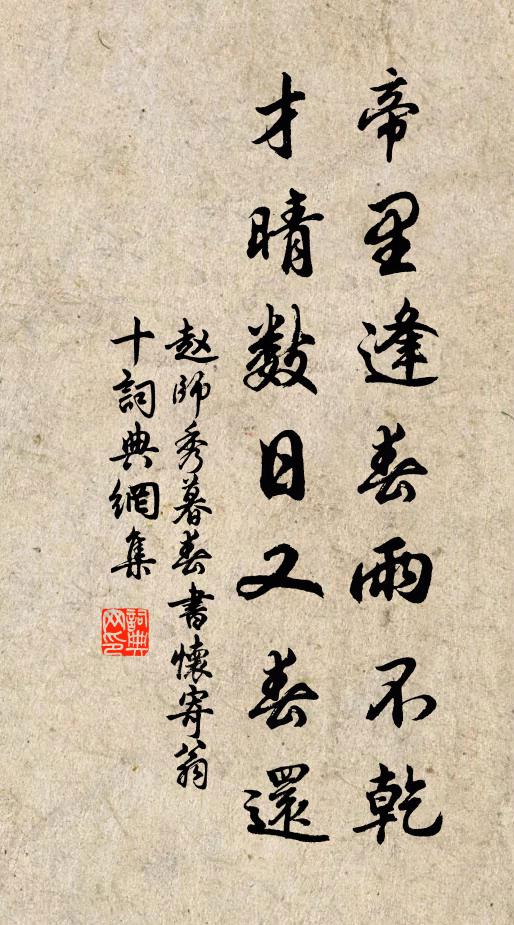 帝里逢春雨不乾
才晴数日又春還
赵師秀暮春書懷寄翁
十詞典網集
詞典
网印